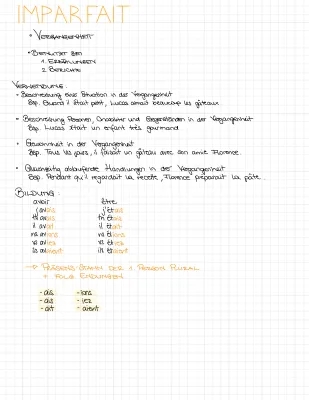 IMPARFAIT
• VERGANGENHEIT
• BENUTZT BEI
1. ERZÄHLUNGEN
2. BERICHTE
VERWENDUNG:
• Beschreibung eine Situation in der Vergangenheit
Bsp. Quand il était petit, Lucas aimait beaucoup les gâteaux.
• Beschreibung Personen, Charakter und Gegenständen in der Vergangenheit
Bsp. Lucas était un enfant très gourmand
• Gewohnheit in der Vergangenheit
Bsp. Tous les jours, il faisait un gâteau avec son amie Florence.
• Gleichzeitig ablaufende Handlungen in der Vergangenheit
Bsp. Pendant qu'il regardait la recette, Florence préparait la pâte.
BILDUNG:
avoir être
j'avais j'étais
tu avais tu étais
il avait il était
ns avions ns étions
vs aviez vs étiez
ils avaient ils étaient
→ PRÄSENS-STAMM DER 1. PERSON PLURAL
+ FOLG. ENDUNGEN
- ais - ions
- ais - iez
- ait - aient